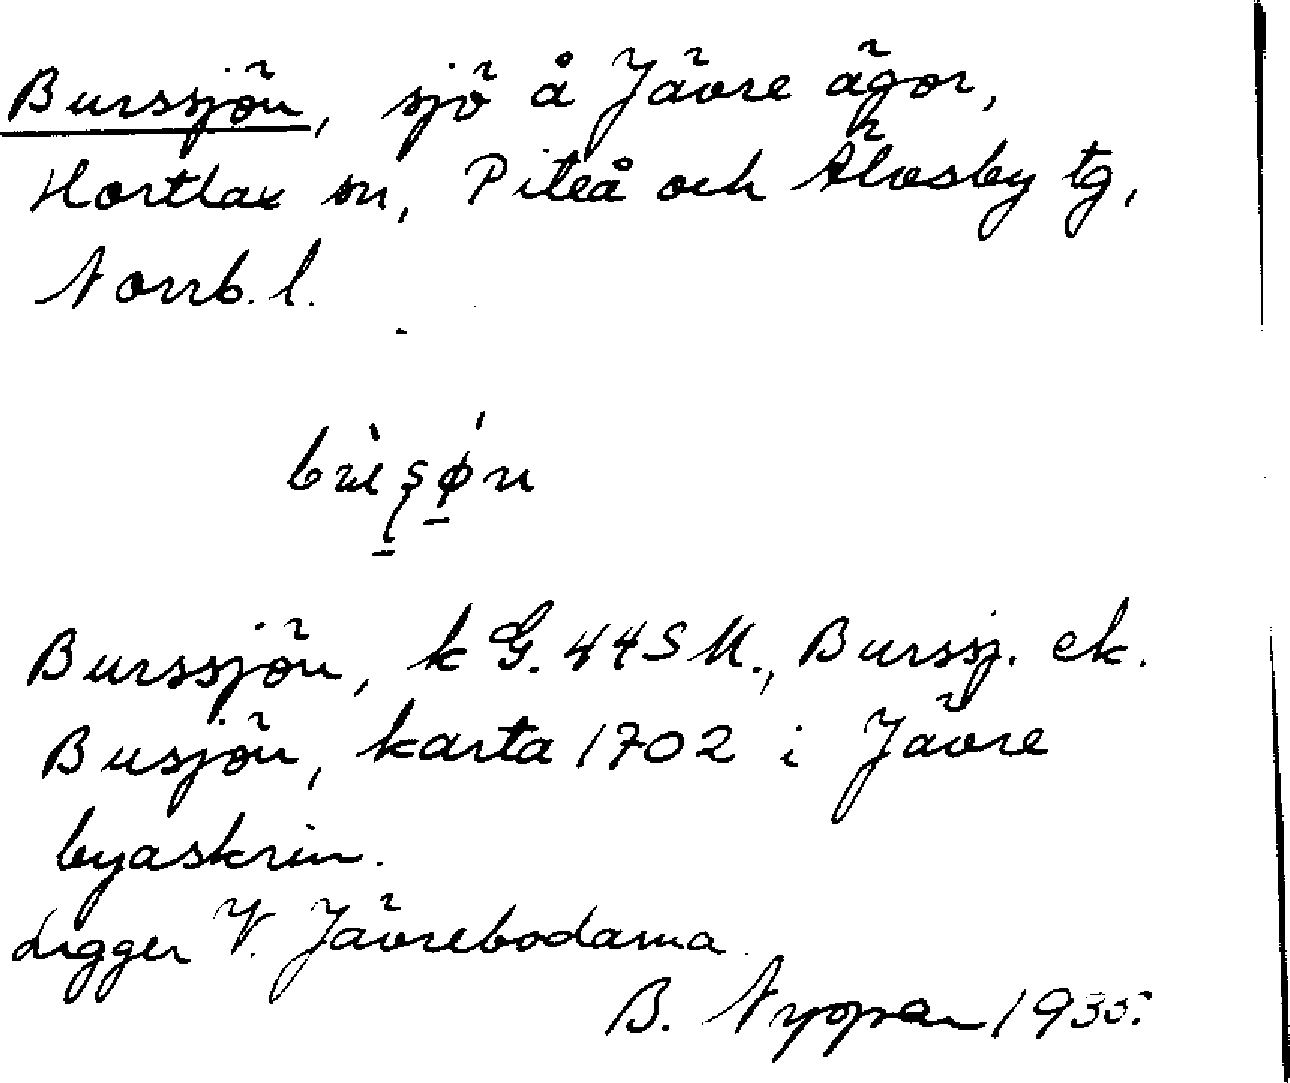 Burssjön, sjö å Jävre ägor,
Hortlax sn, Piteå och Älvsby tg,
Norrb. l.
Burssjön, k G. 44 S M., Burssj. ek.
Busjön, karta 1702 i Jävre
byaskrin.
Ligger V. Jävrebodarna.
B. Nyopen 1935.